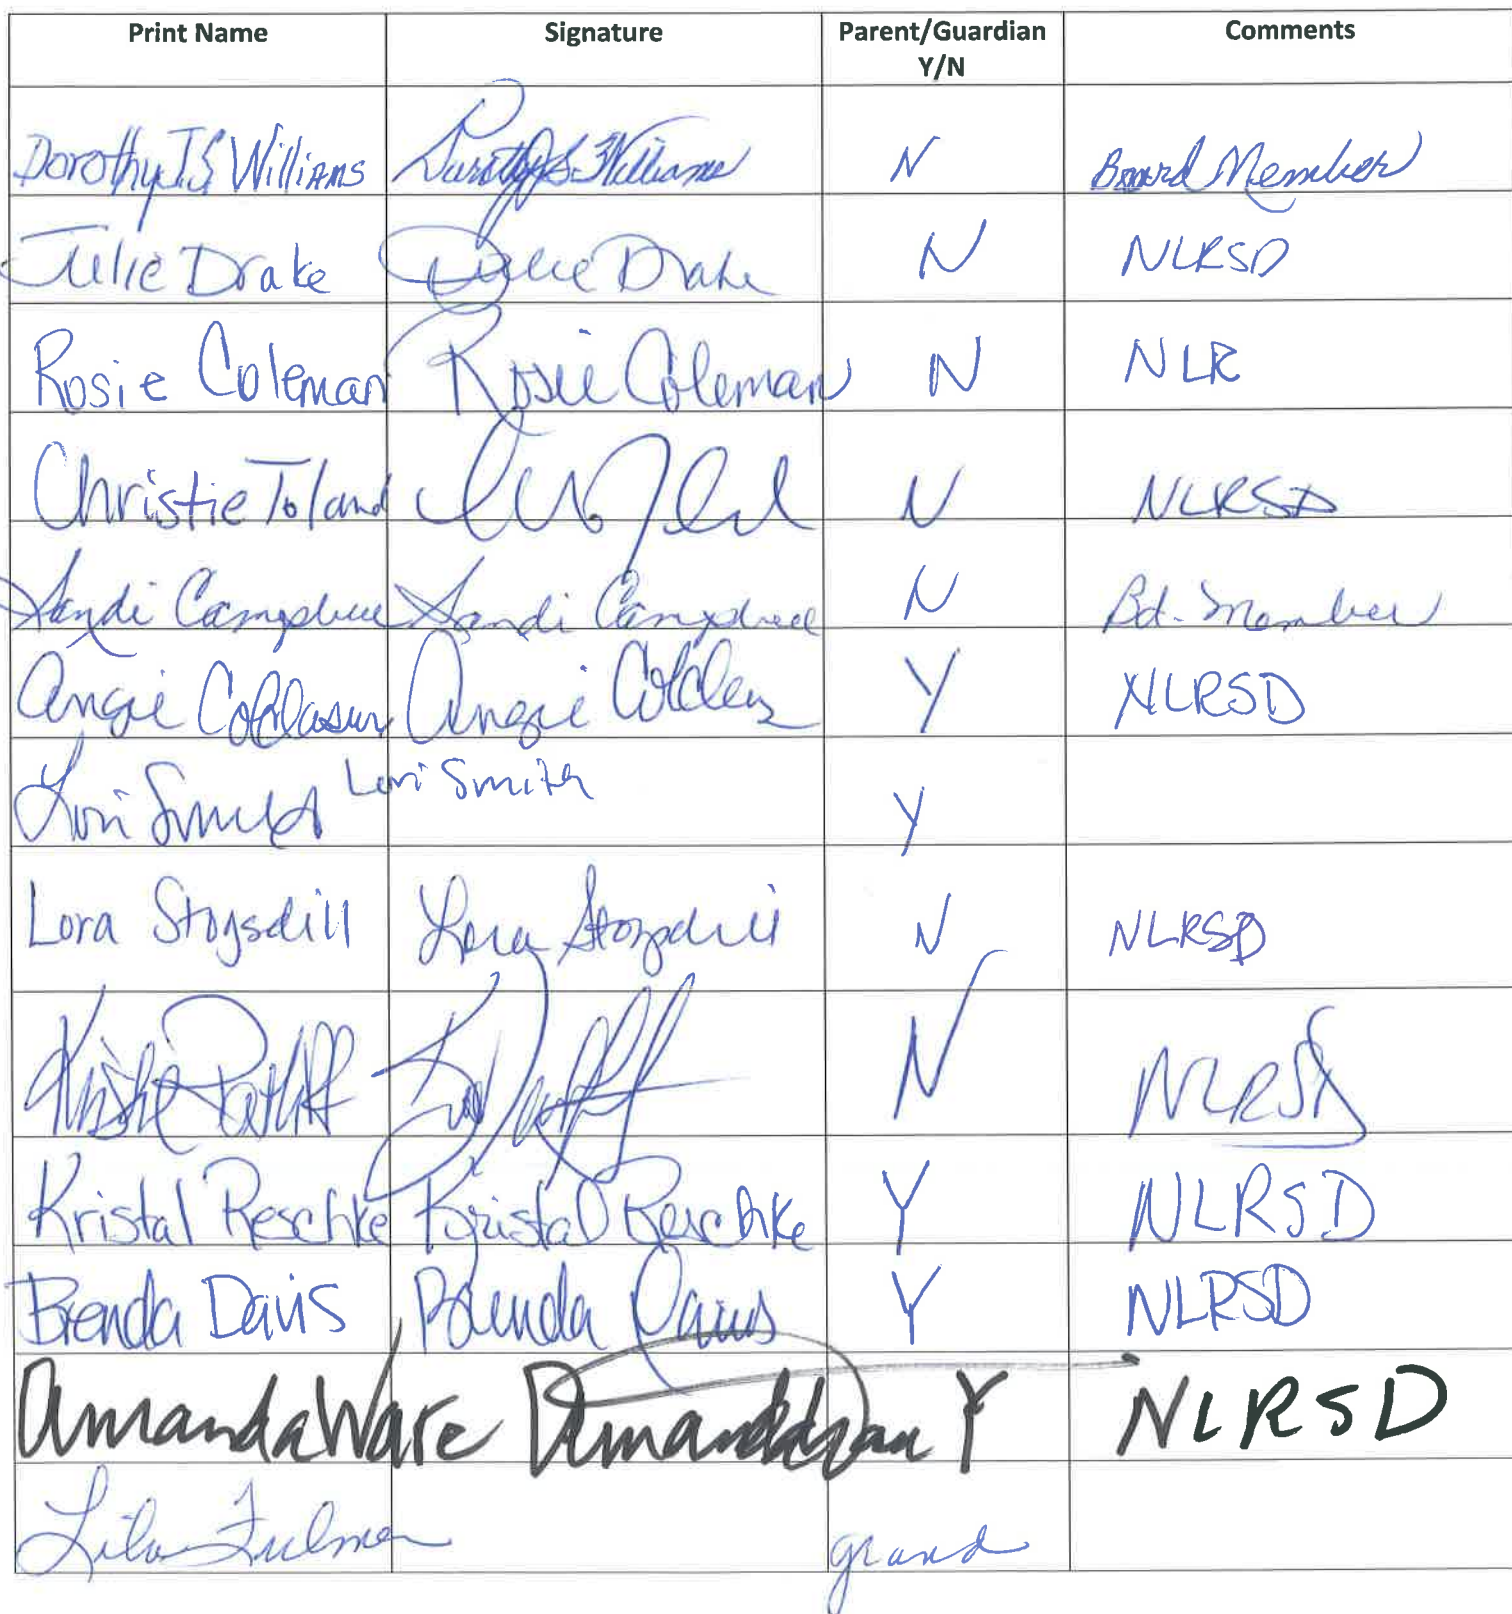 Print Name Signature Parent/Guardian Y/N Comments
Dorothy J.S Williams Dorothy J.S. Williams N Board Member
Julie Drake Julie Drake N NLRSD
Rosie Coleman Rosie Coleman N NLR
Christie Toland N NLRSD
Sandi Campbell Sandi Campbell N Bd. Member
Angie Angie Y NLRSD
Lori Smith Lori Smith Y
Lora Stogsdill Lora Stogsdill N NLRSD
Kristie Ratliff N NLRSD
Kristal Reschke Kristal Reschke Y NLRSD
Brenda Davis Brenda Davis Y NLRSD
Amanda Ware Amanda Y NLRSD
Lila Fulmer grand